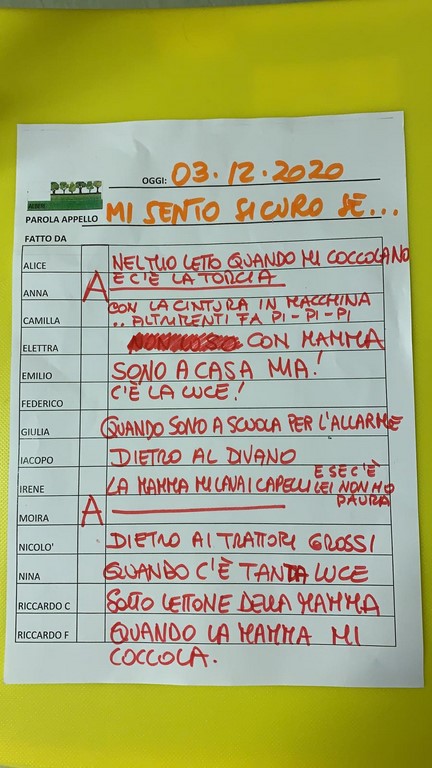 OGGI: 03.12.2020
ALBERI
PAROLA APPELLO MI SENTO SICURO SE...
FATTO DA
ALICE NEL MIO LETTO QUANDO MI COCCOLANO
E C'È LA TORCIA
ANNA A
CAMILLA CON LA CINTURA IN MACCHINA
.. ALTRIMENTI FA PI-PI-PI
ELETTRA CON MAMMA
EMILIO SONO A CASA MIA!
FEDERICO C'È LA LUCE!
GIULIA QUANDO SONO A SCUOLA PER L'ALLARME
IACOPO DIETRO AL DIVANO
IRENE LA MAMMA MI LAVA I CAPELLI E SE C'È
LEI NON HO
PAURA
MOIRA A
NICOLO' DIETRO AI TRATTORI GROSSI
NINA QUANDO C'È TANTA LUCE
RICCARDO C SOTTO LETTONE DELLA MAMMA
RICCARDO F QUANDO LA MAMMA MI
COCCOLA.